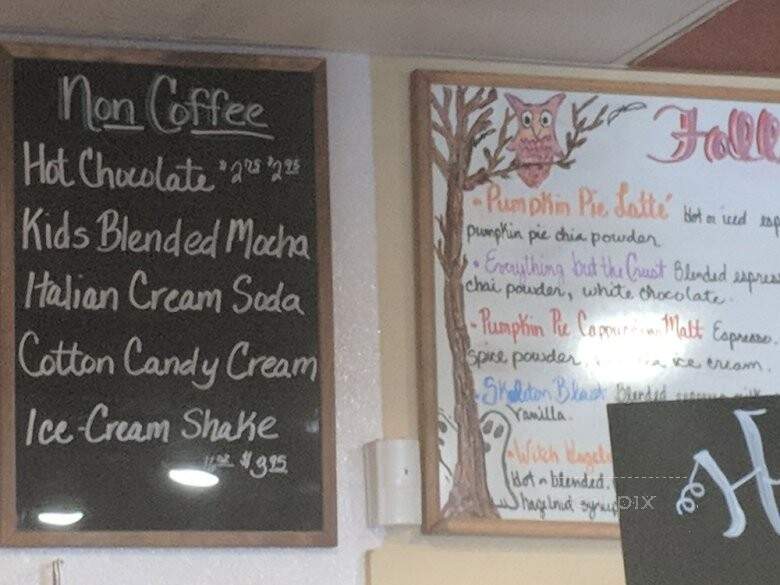 Non Coffee
Hot Chocolate $2.75 $2.95
Kids Blended Mocha
Italian Cream Soda
Cotton Candy Cream
Ice-Cream Shake
$3.95
Fall
• Pumpkin Pie Latte' Hot or iced esp
pumpkin pie chia powder
• Everything but the Crust Blended espress
chai powder, white chocolate.
• Pumpkin Pie Cappuccino Malt Espresso.
Spice powder, ice cream.
• Skeleton Blast Blended
Vanilla.
• Witch
Hot or blended,
hazelnut syrup
H